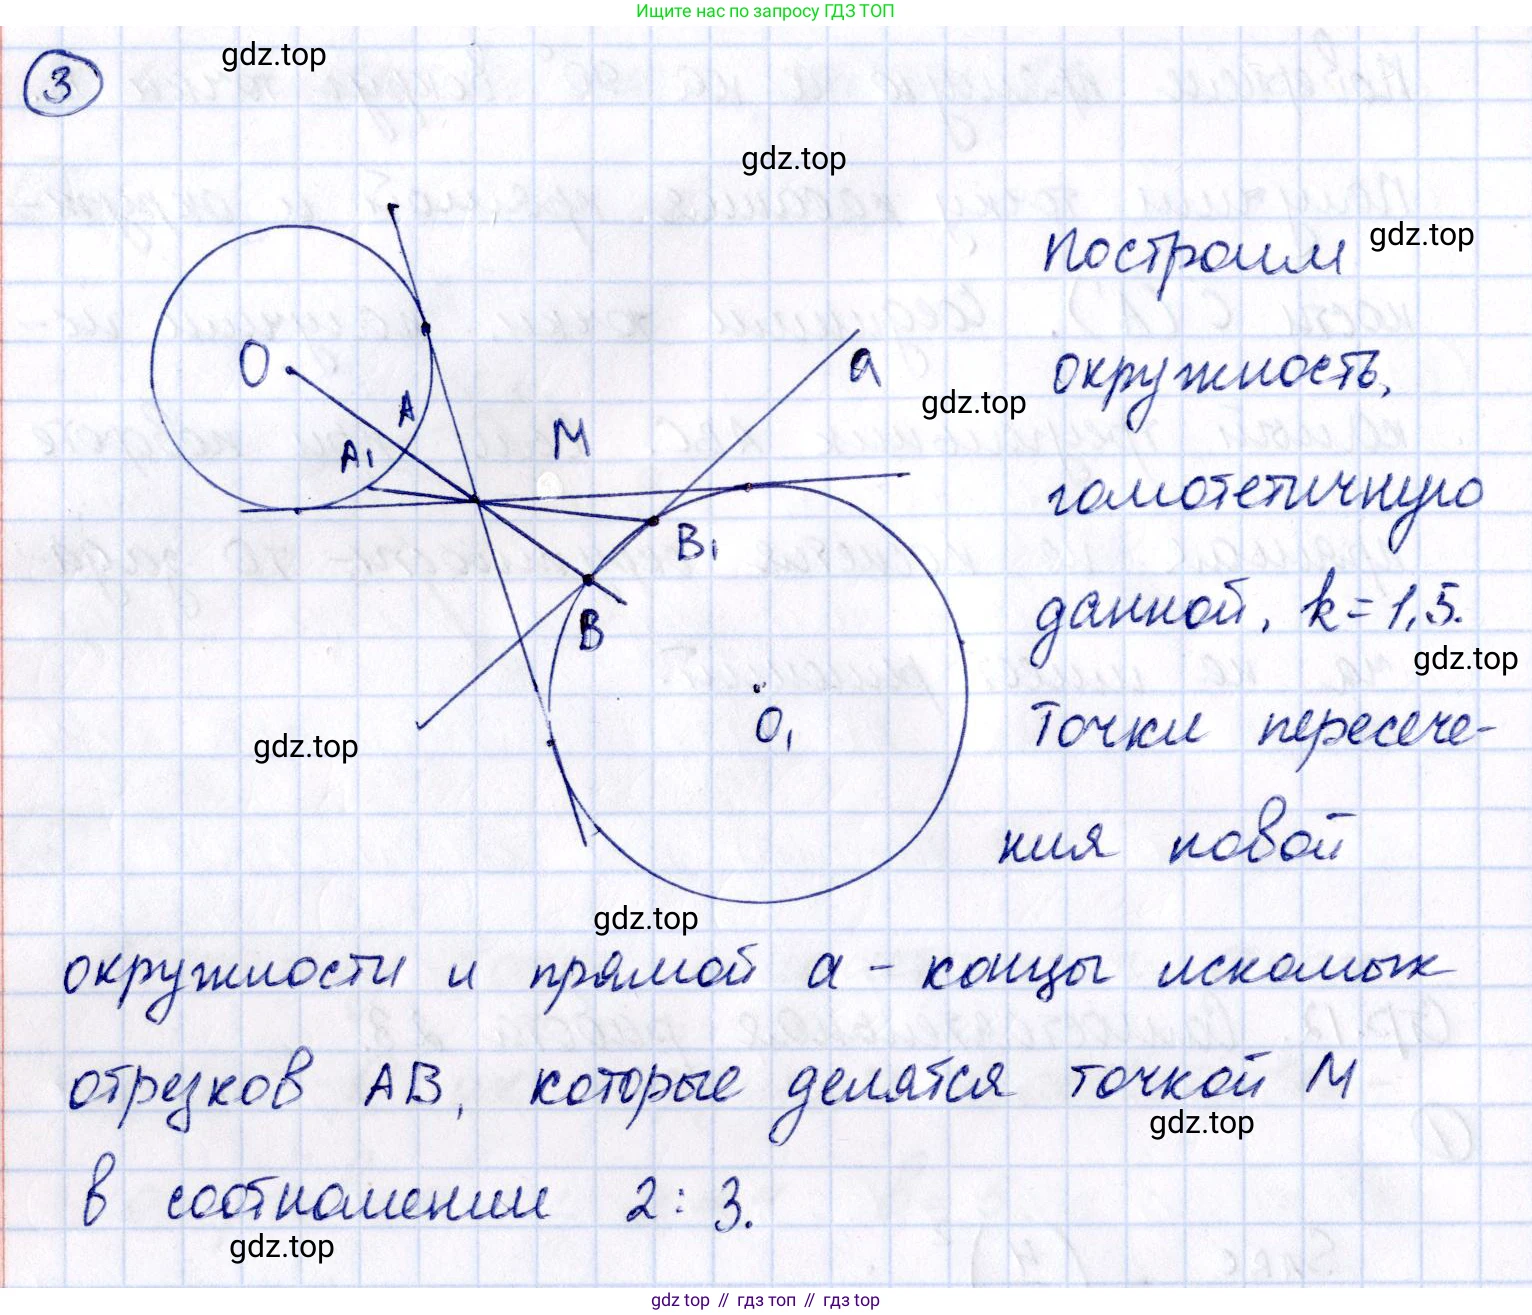 Ищите нас по запросу ГДЗ ТОП
3
gdz.top
gdz.top
построим
gdz.top
O
A
A₁
M
a
окружность,
gdz.top
гомотетичную
B₁
B
данной, k = 1,5.
gdz.top
O₁
Точки пересече-
gdz.top
ния новой
gdz.top
окружности и прямой a - концы искомых
отрезков AB, которые делятся точкой M
gdz.top
в соотношении 2 : 3.
gdz.top
gdz top // гдз топ // гдз top